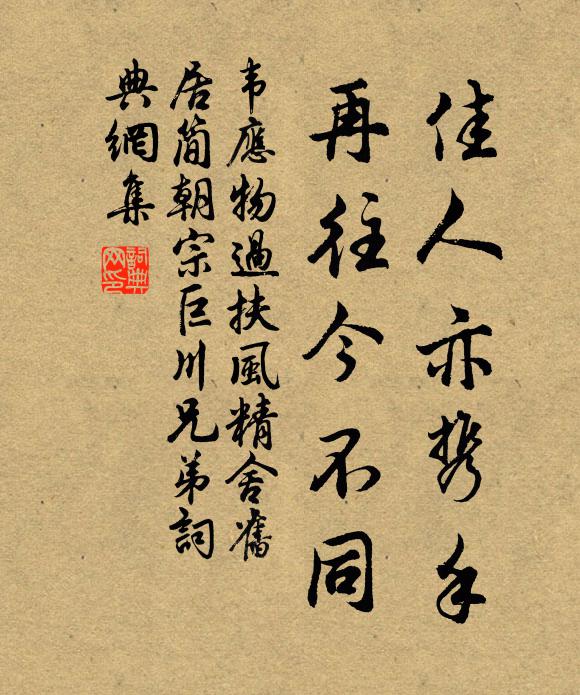 佳人亦攜手
再往今不同
韦應物過扶風精舍舊
居简朝宗巨川兄弟詞
典網集
詞典网印